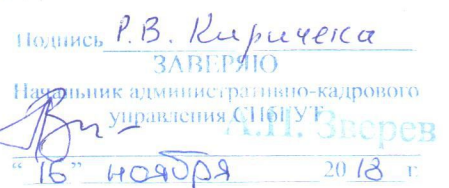 Подпись Р.В. Киричека
ЗАВЕРЯЮ
Начальник административно-кадрового
управления СПбГУТ
А.П. Зверев
“16” ноября 2018 г.